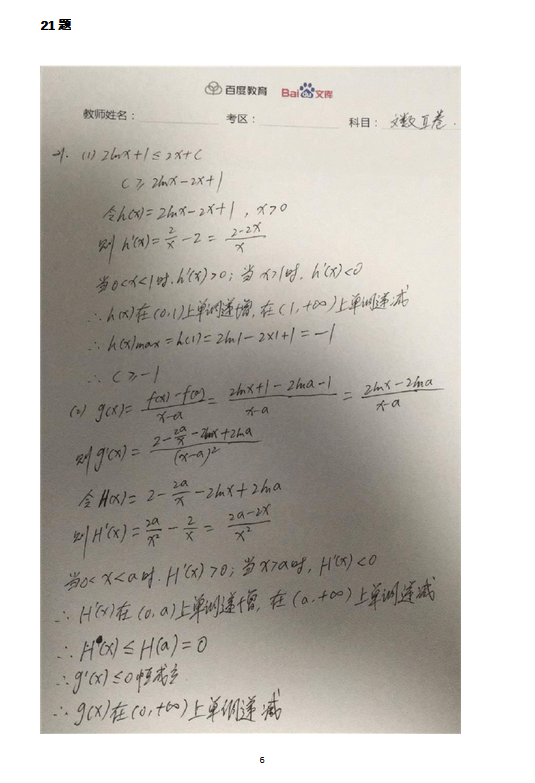 21题
百度教育 Bai文库
教师姓名： 考区： 科目：文数Ⅱ卷.
21. (1) 2lnx+1≤2x+c
c≥2lnx-2x+1
令h(x)=2lnx-2x+1，x>0
则h'(x)=2/x-2=(2-2x)/x
当0<x<1时.h'(x)>0；当x>1时.h'(x)<0
∴h(x)在(0,1)上单调递增,在(1,+∞)上单调递减
∴h(x)max=h(1)=2ln1-2×1+1=-1
∴ c≥-1
(2) g(x)=(f(x)-f(a))/(x-a)=(2lnx+1-2lna-1)/(x-a)=(2lnx-2lna)/(x-a)
则g'(x)=(2-2a/x-2lnx+2lna)/(x-a)²
令H(x)=2-2a/x-2lnx+2lna
则H'(x)=2a/x²-2/x=(2a-2x)/x²
当0<x<a时.H'(x)>0；当x>a时,H'(x)<0
∴H(x)在(0,a)上单调递增,在(a,+∞)上单调递减
∴H(x)≤H(a)=0
∴g'(x)≤0恒成立
∴g(x)在(0,+∞)上单调递减
6